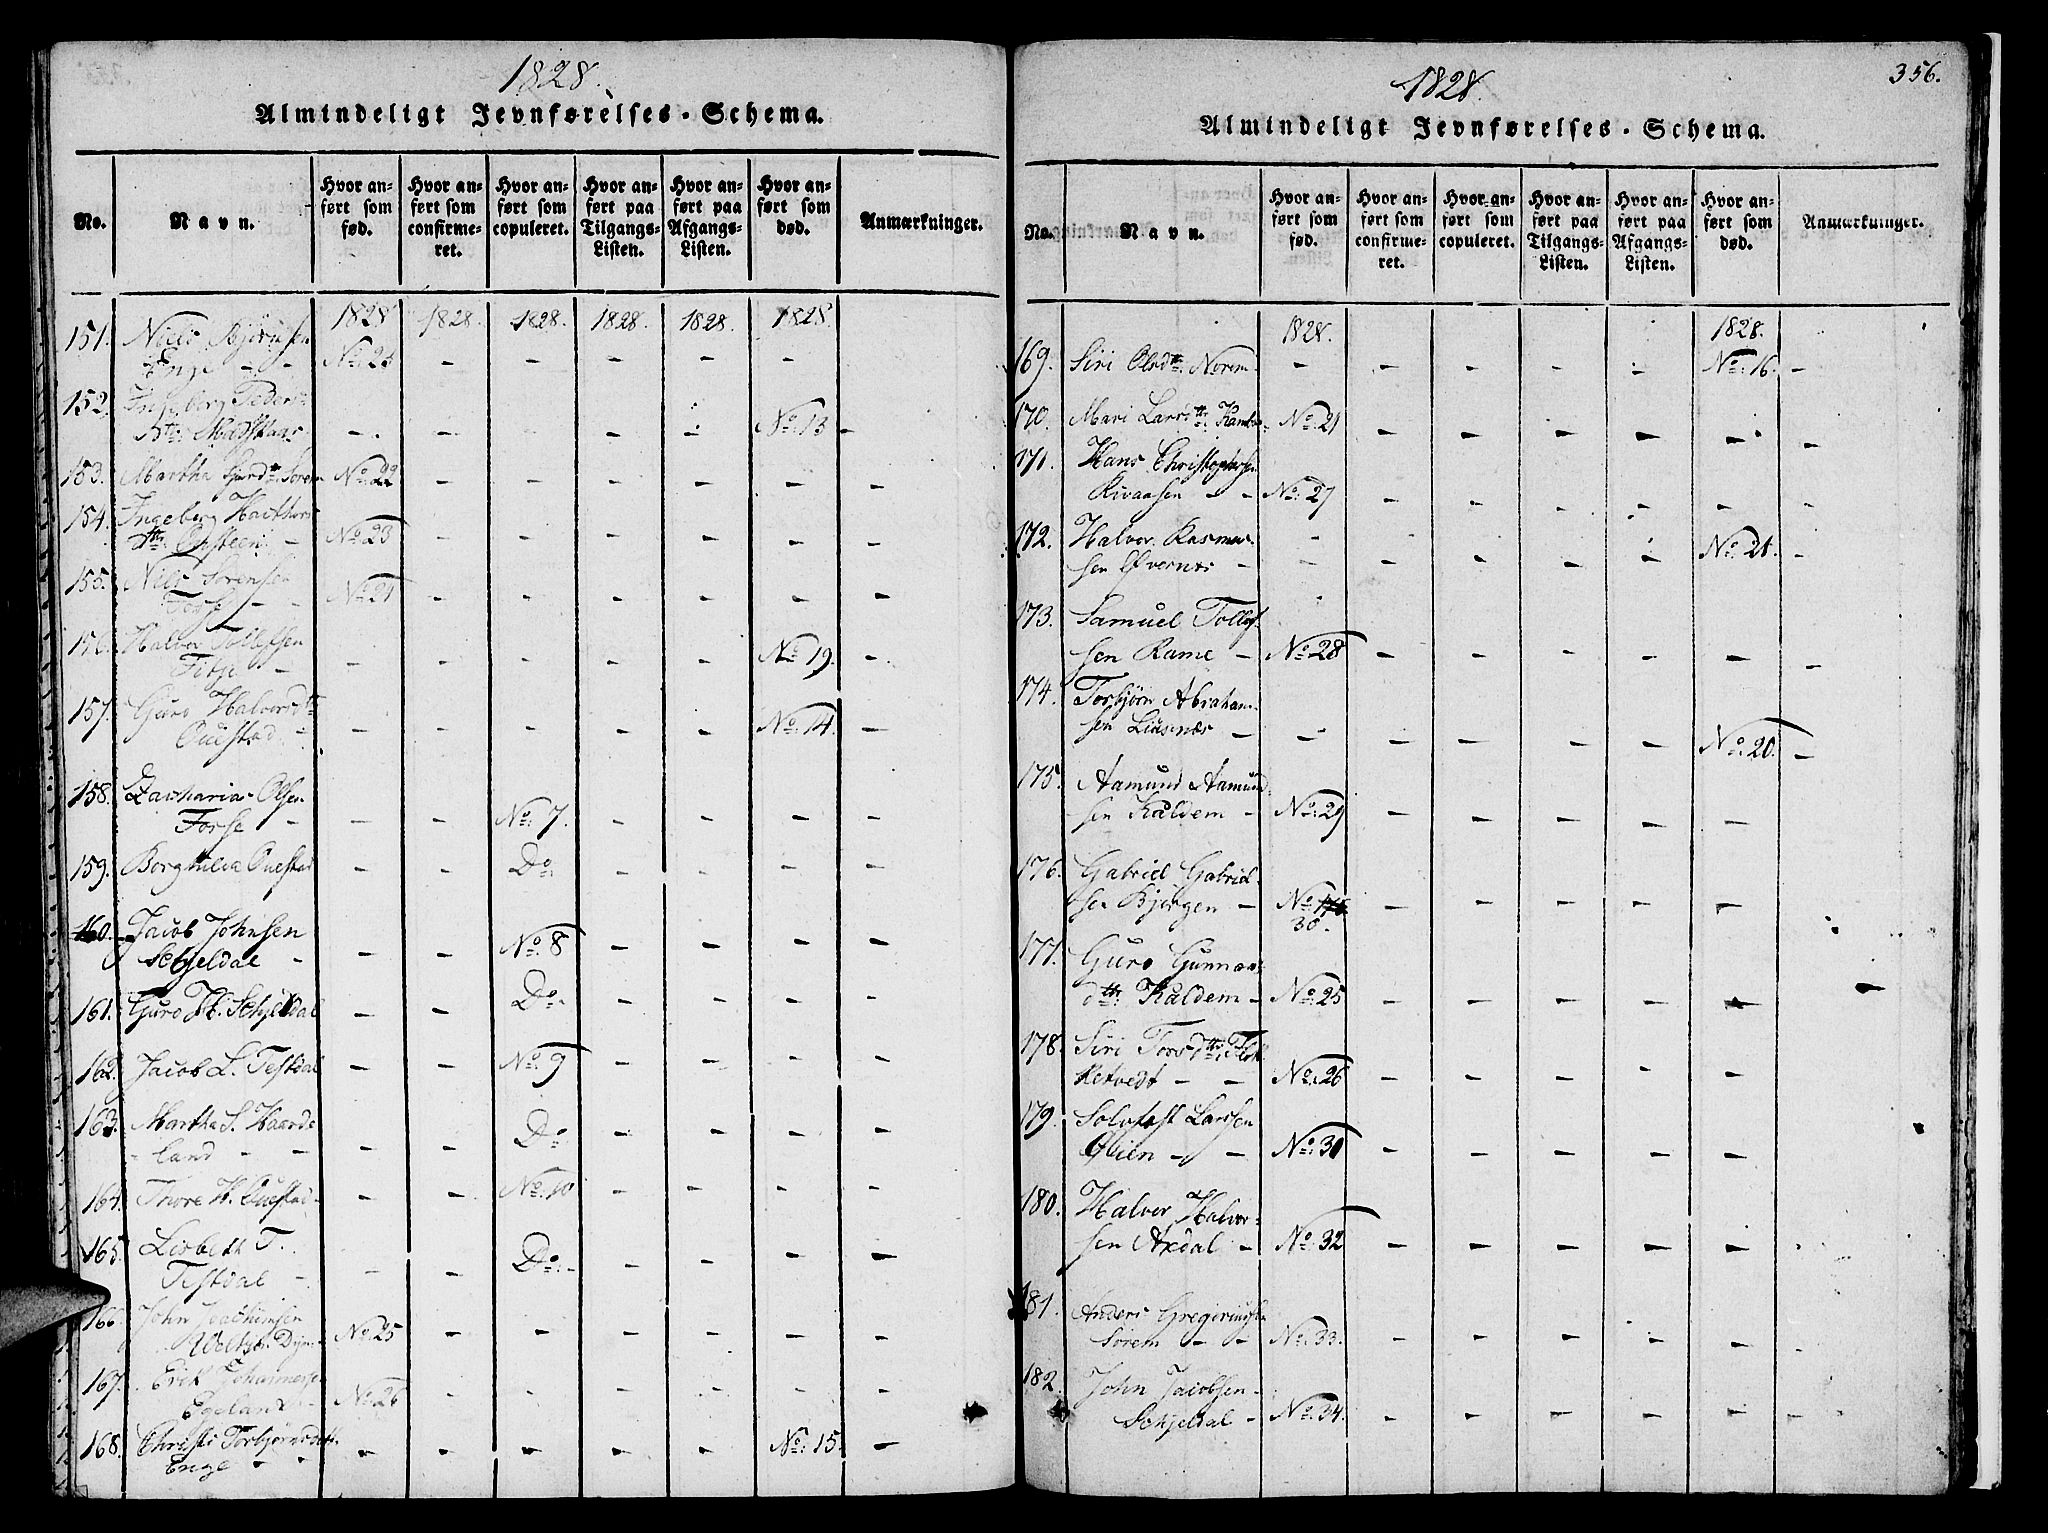 1828.
Almindeligt Jevnførelses-Schema.
No.
Navn.
Hvor anført som fød.
Hvor anført som confirmeret.
Hvor anført som copuleret.
Hvor anført paa Tilgangs-Listen.
Hvor anført paa Afgangs-Listen.
Hvor anført som død.
Anmærkninger.
1828 1828. 1828. 1828. 1828. 1828.
151. Niels Bjørnsen
Enge - - No: - - - - -
152. Ingeberg Peders
dtr: - - - - - No: 13 -
153. Martha Sjurdtr: Sørem No: 22 - - - - - -
154. Ingeberg Haethors
dtr: Onsteen - No: 23 - - - - - -
155. Nils Sørensen
Forse - - No: 21 - - - - - -
156. Halvor Tollefsen
Titje - - - - - - No: 19. -
157. Guro Halvorsdtr:
Ouestad - - - - - - No: 14. -
158. Zacharias Olsen
Forse - - - No: 7. - - - -
159. Borghilda Ouestad - - Do: - - - -
160. Jacob Johnsen
Schjeldal - - - No: 8 - - - -
161. Guro H. Schjeldal - - Do: - - - -
162. Jacob L. Testdal - - No: 9 - - - -
163. Martha S. Haarde
land - - - - Do: - - - -
164. Thore H. Ouestad - - No: 10 - - - -
165. Lisbeth T.
Testdal - - - Do: - - - - -
166. John Joachimsen
No: 25 - - - - - -
167. Erik Johannesen
Egeland - No: 26 - - - - - -
168. Christi Torbjørnsdtr.
Enge - - - - - - - No: 15. -
356.
1828.
Almindeligt Jevnførelses-Schema.
No.
Navn.
Hvor anført som fød.
Hvor anført som confirmeret.
Hvor anført som copuleret.
Hvor anført paa Tilgangs-Listen.
Hvor anført paa Afgangs-Listen.
Hvor anført som død.
Anmærkninger.
1828. 1828.
169. Siri Olsdtr: Norem - - - - - No: 16. -
170. Mari Larsdtr: No: 21 - - - - - -
171. Hans Christophersen
Rivaasen - - No: 27 - - - - - -
172. Halvor Rasmus- - - - - - No: 21. -
sen Øvernes - - - - - -
173. Samuel Tollef-
sen Rame - No: 28 - - - - - -
174. Torbjørn Abraham-
sen Liusnæs - - - - - - No: 20. -
175. Aamund Aamund-
sen Kaldem - No: 29 - - - - -
176. Gabriel Gabriel-
sen Bjørgen - No: - - - - -
30.
177. Guro Gunnars
dtr: Kaldem - No: 25 - - - - - -
178. Siri Torsdtr: Flek
Ketvedt - - No: 26 - - - - -
179. Solvfast Larsen
Øien - - No: 31 - - - - -
180. Halvor Halvor-
sen Axdal - No: 32 - - - - - -
181. Anders Gregoriussen
Sørem - - No: 33. - - - - - -
182. John Jacobsen
Schjeldal - No: 34. - - - - - -